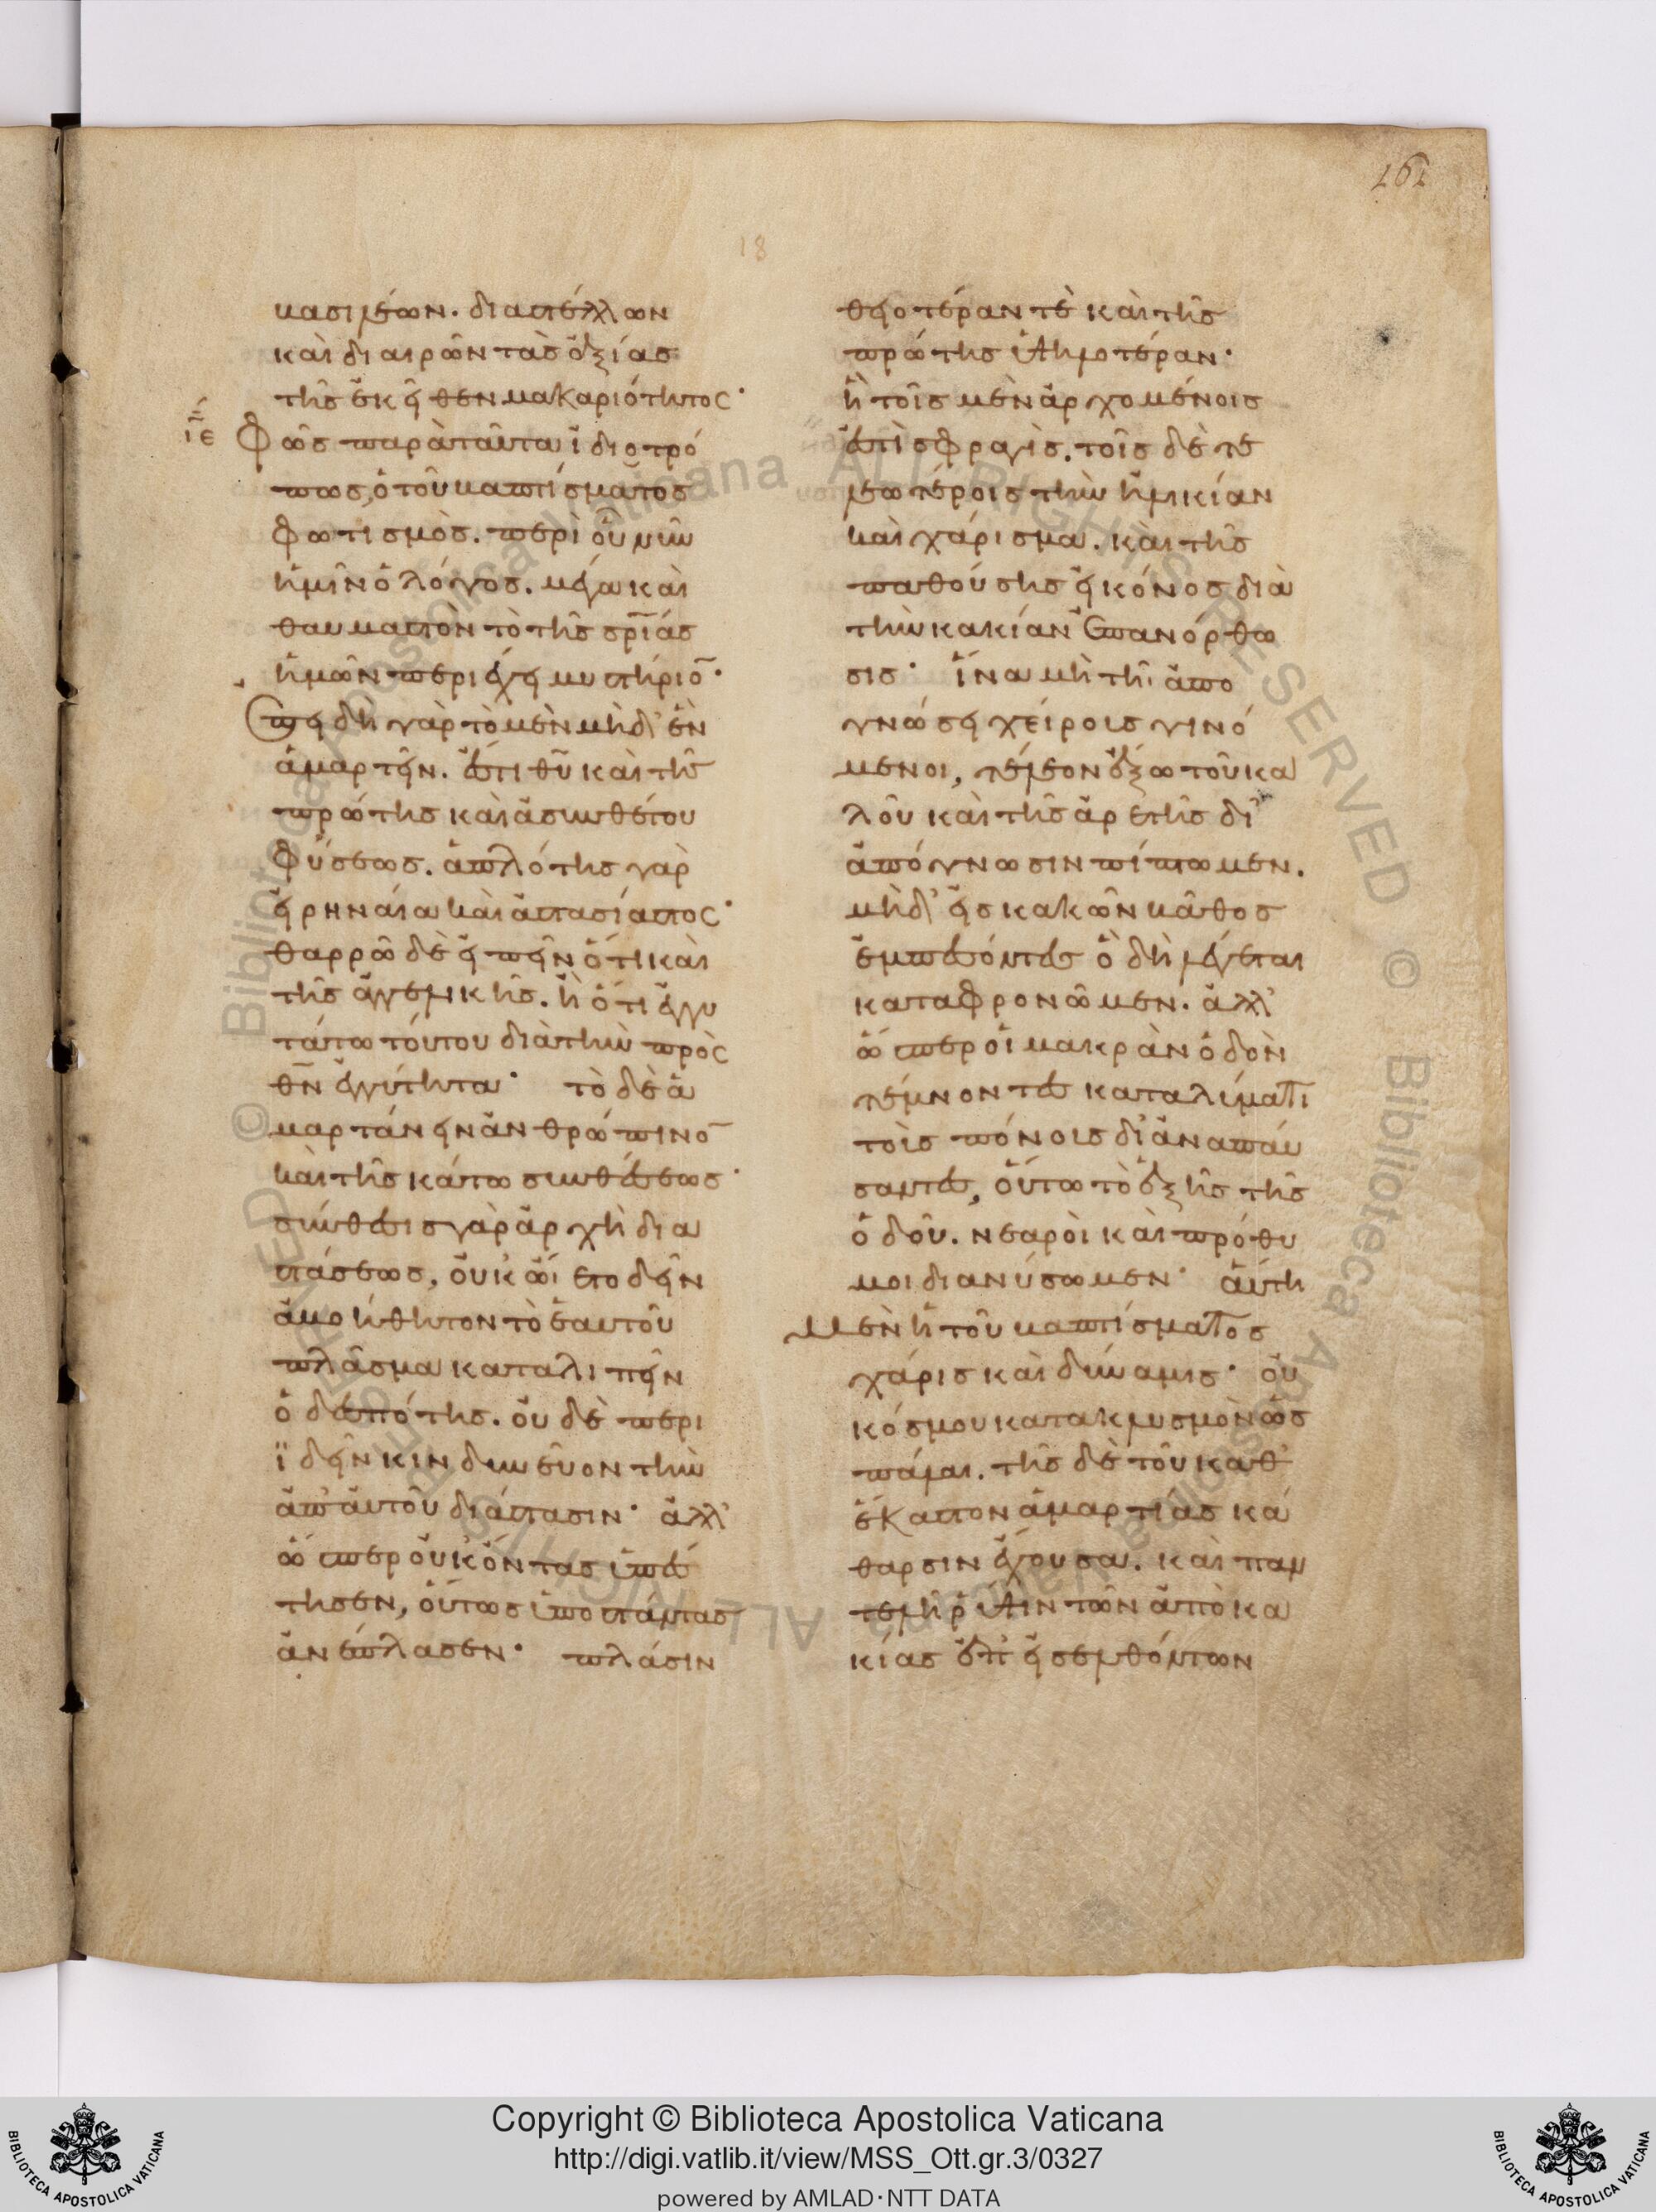 161
18
βασιλέων· διαστέλλων
καὶ διαιρῶν τὰς ἀξίας
τῆς ἐκεῖθεν μακαριότητος·
ιε Φῶς παρὰ ταῦτα ἰδιοτρό
πως, ὁ τοῦ βαπτίσματος
φωτισμὸς. περὶ οὗ νῦν
ἡμῖν ὁ λόγος. μέγα καὶ
θαυμαστὸν τὸ τῆς σρίας
ἡμῶν περιέχει μυστήριο̄·
Ἐπειδὴ γὰρ τὸ μὲν μηδὲν
ἁμαρτεῖν. ἐστὶ θῦ καὶ τῆς
πρώτης καὶ ἀσυνθέτου
φύσεως. ἁπλότης γὰρ
εἰρηναία καὶ ἀστασίαστος·
θαρρῶ δὲ εἰπεῖν ὅτι καὶ
τῆς ἀγγελικῆς. ἢ ὅτι ἐγγυ
τάτω τούτου διὰ τὴν πρὸς
θν̄ ἐγγύτητα· τὸ δὲ ἁ
μαρτάνειν ἀνθρώπινο̄
καὶ τῆς κάτω συνθέσεως·
σύνθεσις γὰρ ἀρχὴ δια
στάσεως, οὐκ ᾤετο δεῖν
ἀβοήθητον τὸ ἑαυτοῦ
πλάσμα καταλιπεῖν
ὁ δεσπότης. οὐδὲ περι
ϊδεῖν κινδυνεῦον τὴν
ἀπ' αὐτοῦ διάστασιν· ἀλλ'
ὥσπερ οὐκ ὄντας ὑπέ
στησεν, οὕτως ὑποστάντας
ἀνέπλασεν· πλάσιν
θειοτέραν τὲ καὶ τῆς
πρώτης ὑψηλοτέραν·
ἣ τοῖς μὲν ἀρχομένοις
ἐστὶ σφραγὶς. τοῖς δὲ τε
λεωτέροις τὴν ἡλικίαν
καὶ χάρισμα. καὶ τῆς
παθούσης εἰκόνος διὰ
τὴν κακίαν ἐπανόρθω
σις· ἵνα μὴ τῆι ἀπο
γνώσει χείροις γινό
μενοι, τέλεον ἔξω τοῦ κα
λοῦ καὶ τῆς ἀρετῆς δι'
ἀπόγνωσιν πίπτωμεν.
μηδ' εἰς κακῶν βάθος
ἐμπεσόντες ὃ δὴ λέγεται
καταφρονῶμεν. ἀλλ'
ὥσπερ οἱ μακρὰν ὁδὸν
τέμνοντες καταλύματι
τοῖς πόνοις διαναπαύ
σαντες, οὕτω τὸ ἑξῆς τῆς
ὁδοῦ. νεαροὶ καὶ πρόθυ
μοι διανύσωμεν· αὕτη
μὲν ἡ τοῦ βαπτίσματος
χάρις καὶ δύναμις· οὐ
κόσμου κατακλυσμὸν ὡς
πάλαι. τῆς δὲ τοῦ καθ'
ἕκαστον ἁμαρτίας κά
θαρσιν ἔχουσα. καὶ παν
τελῆ ῥύψιν τῶν ἀπὸ κα
κίας ἐπεισελθόντων
Copyright © Biblioteca Apostolica Vaticana
http://digi.vatlib.it/view/MSS_Ott.gr.3/0327
powered by AMLAD·NTT DATA
BIBLIOTECA APOSTOLICA VATICANA
BIBLIOTECA APOSTOLICA VATICANA